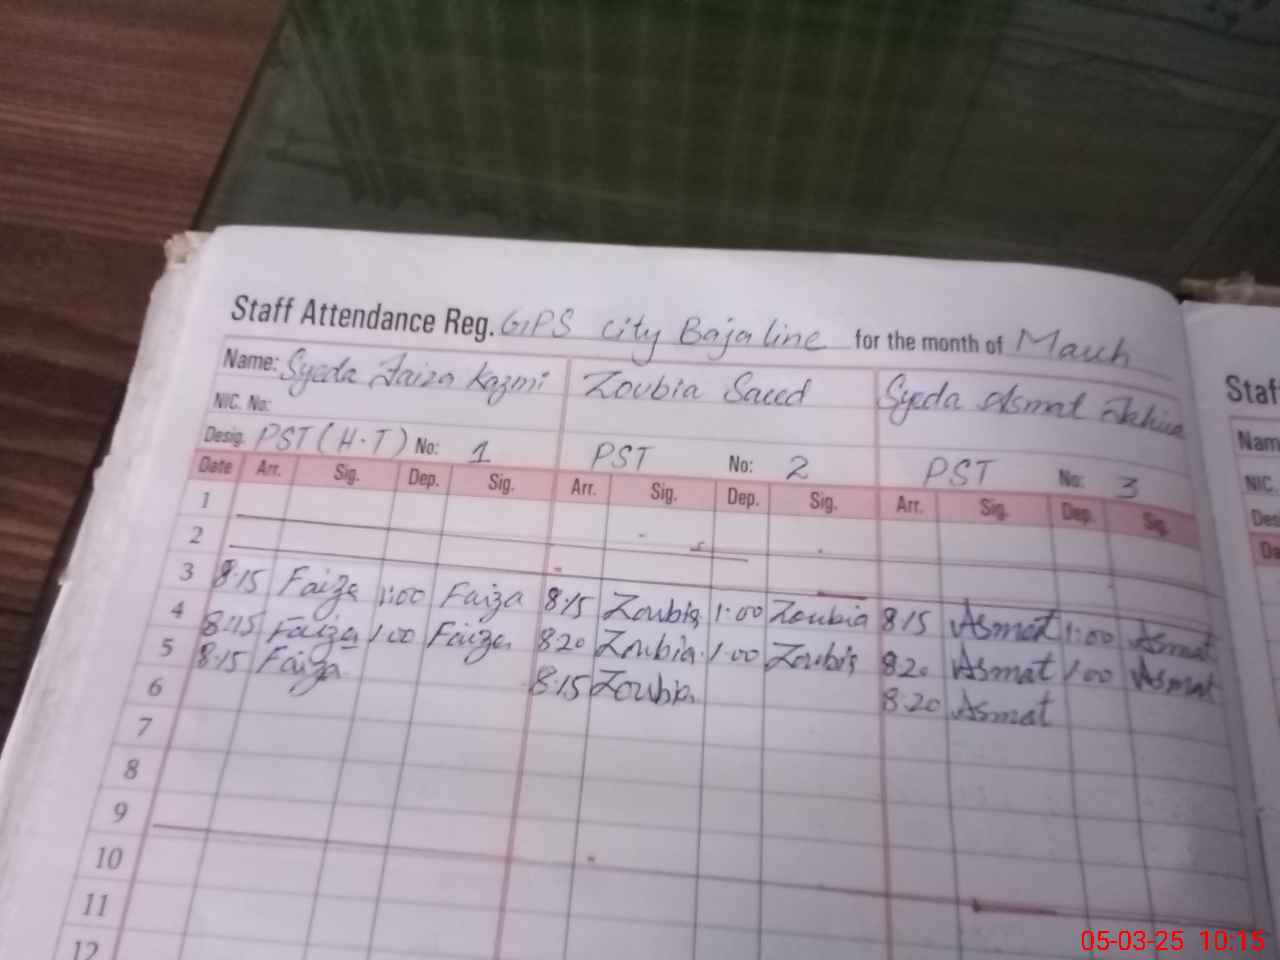 Staff Attendance Reg. GPS city Bajaline for the month of March
Name: Syeda Faiza Kazmi Zoubia Saeed Syeda Asmat
NIC. No:
Desig. PST (H.T) No: 1 PST No: 2 PST No: 3
Date Arr. Sig. Dep. Sig. Arr. Sig. Dep. Sig. Arr. Sig. Dep. Sig.
1
2
3 8:15 Faiza 1:00 Faiza 8:15 Zoubia 1:00 Zoubia 8:15 Asmat 1:00 Asmat
4 8:15 Faiza 1:00 Faiza 8:20 Zoubia 1:00 Zoubia 8:20 Asmat 1:00 Asmat
5 8:15 Faiza 8:15 Zoubia 8:20 Asmat
6
7
8
9
10
11
12
Staf
Nam
NIC.
Des
Da
05-03-25 10:15